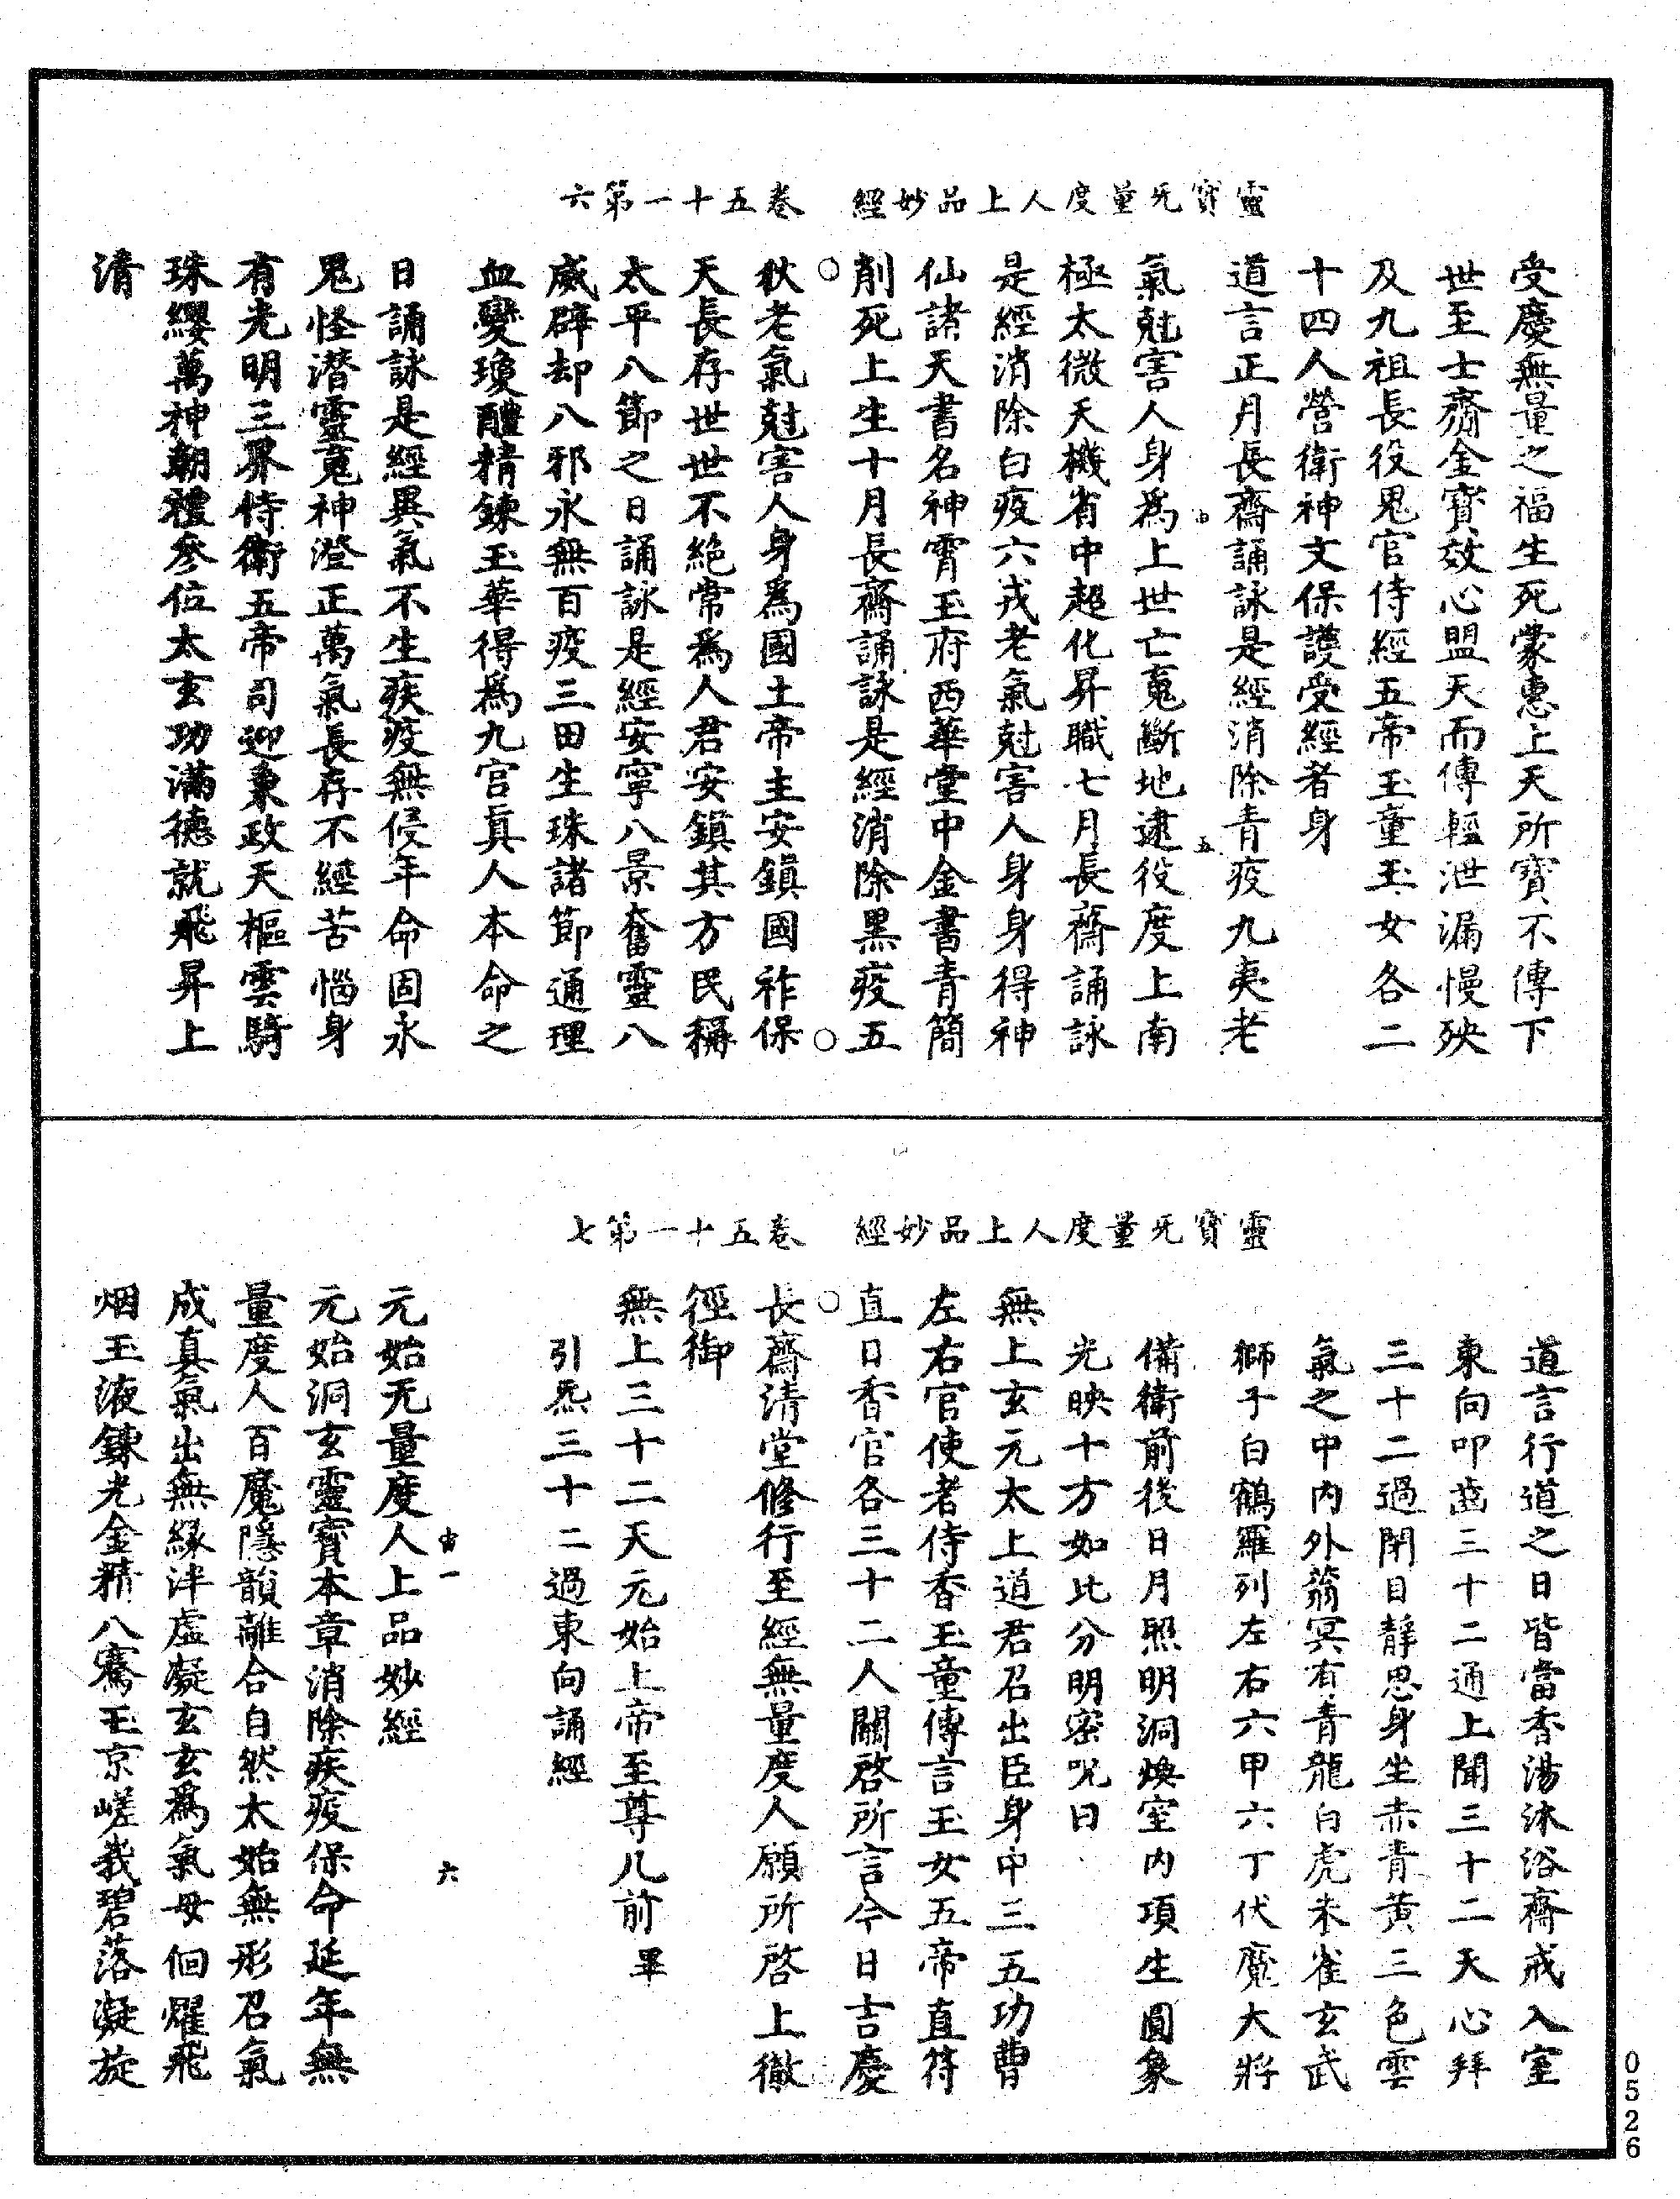 靈寶无量度人上品妙經　卷五十一第六
受慶無量之福生死蒙惠上天所寶不傳下
世至士齎金寶效心盟天而傳輕泄漏慢殃
及九祖長役鬼官侍經五帝玉童玉女各二
十四人營衛神文保護受經者身
道言正月長齋誦詠是經消除青疫九夷老
氣尅害人身爲上世亡䰟斷地逮役度上南
極太微天機省中超化昇職七月長齋誦詠
是經消除白疫六戎老氣尅害人身身得神
仙諸天書名神霄玉府西華堂中金書青簡
削死上生十月長齋誦詠是經消除黑疫五
狄老氣尅害人身爲國土帝主安鎮國祚保
天長存世世不絶常爲人君安鎮其方民稱
太平八節之日誦詠是經安寧八景奮靈八
威辟却八邪永無百疫三田生珠諸節通理
血變瓊醴精鍊玉華得爲九宫真人本命之
日誦詠是經異氣不生疾疫無侵年命固永
鬼怪潜靈䰟神澄正萬氣長存不經苦惱身
有光明三界侍衛五帝司迎秉政天樞雲騎
珠纓萬神朝禮參位太玄功滿德就飛昇上
清
靈寶无量度人上品妙經　卷五十一第七
道言行道之日皆當香湯沐浴齋戒入室
東向叩齒三十二通上聞三十二天心拜
三十二過閉目靜思身坐赤青黄三色雲
氣之中内外蓊冥有青龍白虎朱雀玄武
獅子白鶴羅列左右六甲六丁伏魔大將
備衛前後日月照明洞煥室内項生圓象
光映十方如此分明密呪曰
無上玄元太上道君召出臣身中三五功曹
左右官使者侍香玉童傳言玉女五帝直符
直日香官各三十二人關啓所言今日吉慶
長齋清堂修行至經無量度人願所啓上徹
徑御
無上三十二天元始上帝至尊几前 畢
引炁三十二過東向誦經
宙一　六
元始无量度人上品妙經
元始洞玄靈寶本章消除疾疫保命延年無
量度人百魔隱韻離合自然太始無形召氣
成真氣出無緣泮虚凝玄玄爲氣母佪燿飛
烟玉液鍊光金精八騫玉京嵯峩碧落凝旋
0526